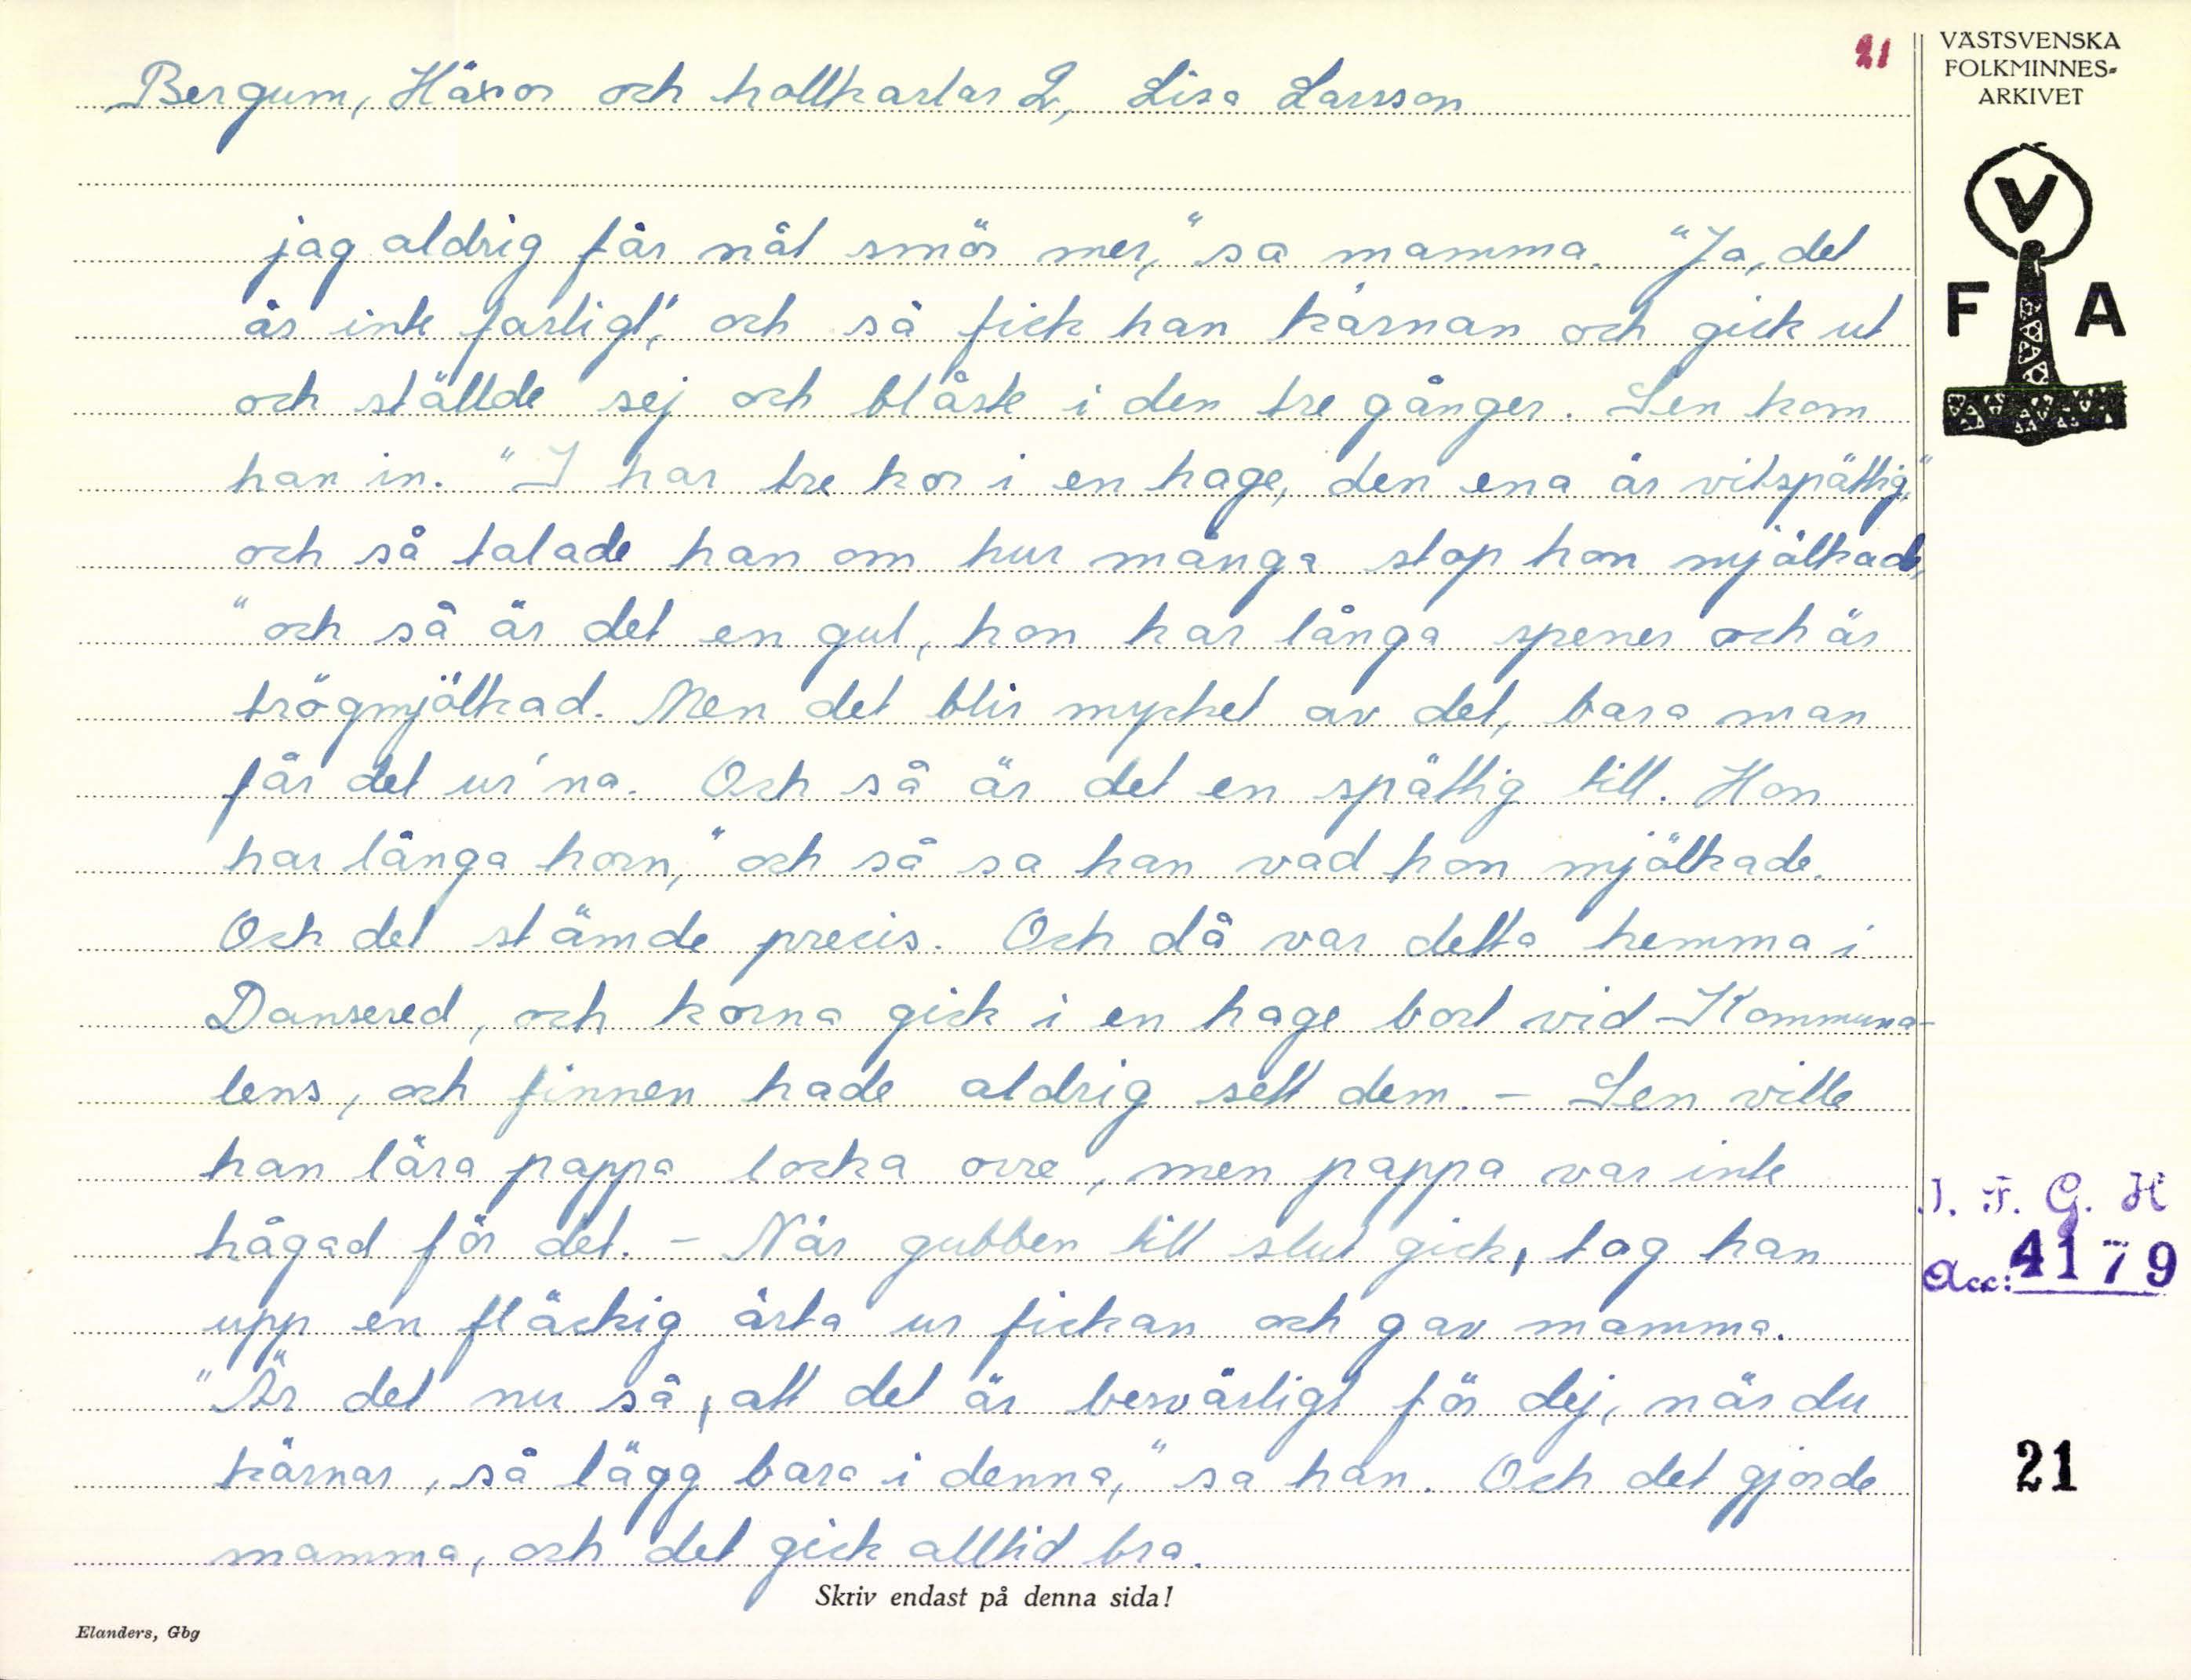 Bergum, Häxor och trollkarlar 2, Lisa Larsson
21
VÄSTSVENSKA
FOLKMINNES-
ARKIVET
V
F A
jag aldrig får nåt smör mer," sa mamma. "Ja, det
är inte farligt", och så fick han kärnan och gick ut
och ställde sej och blåste i den tre gånger. Sen kom
han in. "I har tre kor i en hage, den ena är vitspättig,"
och så talade han om hur många stop hon mjölkade,
"och så är det en gul, hon har långa spener och är
trögmjölkad. Men det blir mycket av det, bara man
får det ur'na. Och så är det en spättig till. Hon
har långa horn," och så sa han vad hon mjölkade.
Och det stämde precis. Och då var detta hemma i
Dansered, och korna gick i en hage bort vid Kommuna-
lens, och finnen hade aldrig sett dem. - Sen ville
han lära pappa locka orre, men pappa var inte
hågad för det. - När gubben till slut gick, tog han
upp en fläckig ärta ur fickan och gav mamma.
"Är det nu så, att det är besvärligt för dej, när du
kärnar, så lägg bara i denna," sa han. Och det gjorde
mamma, och det gick alltid bra.
I. F. G. H
Acc: 4179
21
Skriv endast på denna sida!
Elanders, Gbg